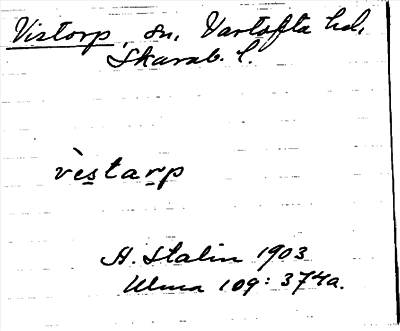 Vistorp, sn, Vartofta hd,
Skarab. l.
vèstarp
A. Stalin 1903
Ulma 109: 374a.